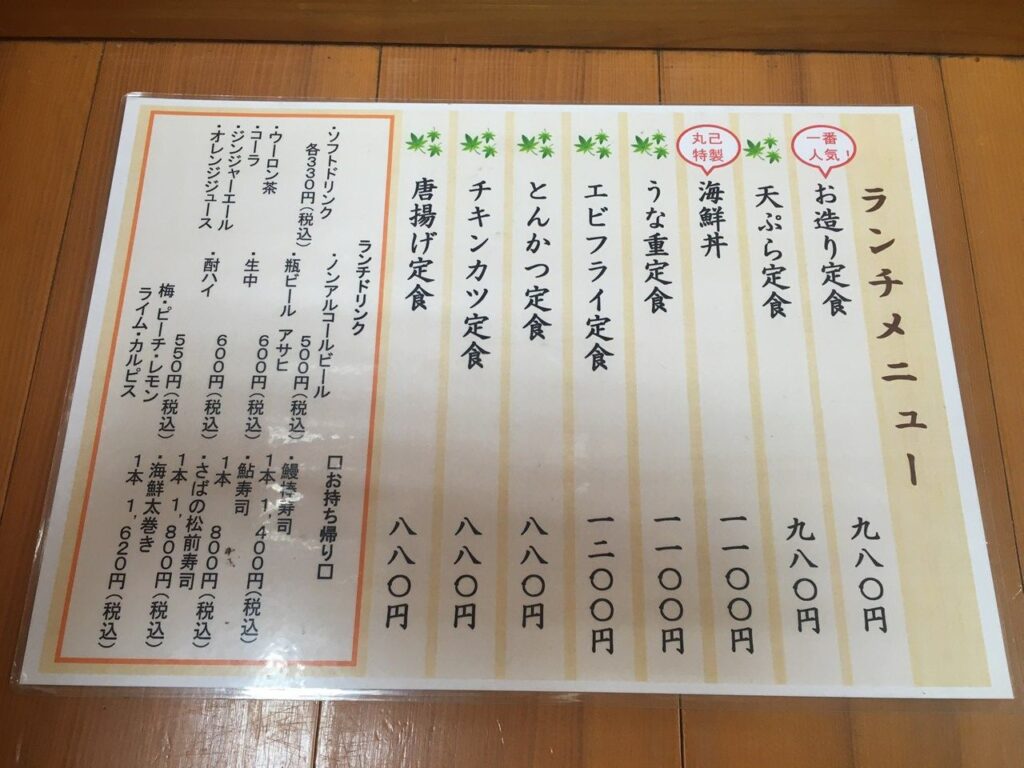 ランチメニュー
一番
人気!
お造り定食 九八〇円
天ぷら定食 九八〇円
丸己
特製
海鮮丼 一一〇〇円
うな重定食 一一〇〇円
エビフライ定食 一二〇〇円
とんかつ定食 八八〇円
チキンカツ定食 八八〇円
唐揚げ定食 八八〇円
ランチドリンク
・ソフトドリンク
各330円(税込)
・ウーロン茶
・コーラ
・ジンジャーエール
・オレンジジュース
・ノンアルコールビール
500円(税込)
・瓶ビール アサヒ
600円(税込)
・生中
600円(税込)
・酎ハイ
550円(税込)
梅・ピーチ・レモン
ライム・カルピス
□お持ち帰り□
・鰻棒寿司
1本 1,400円(税込)
・鮎寿司
1本 800円(税込)
・さばの松前寿司
1本 1,800円(税込)
・海鮮太巻き
1本 1,620円(税込)